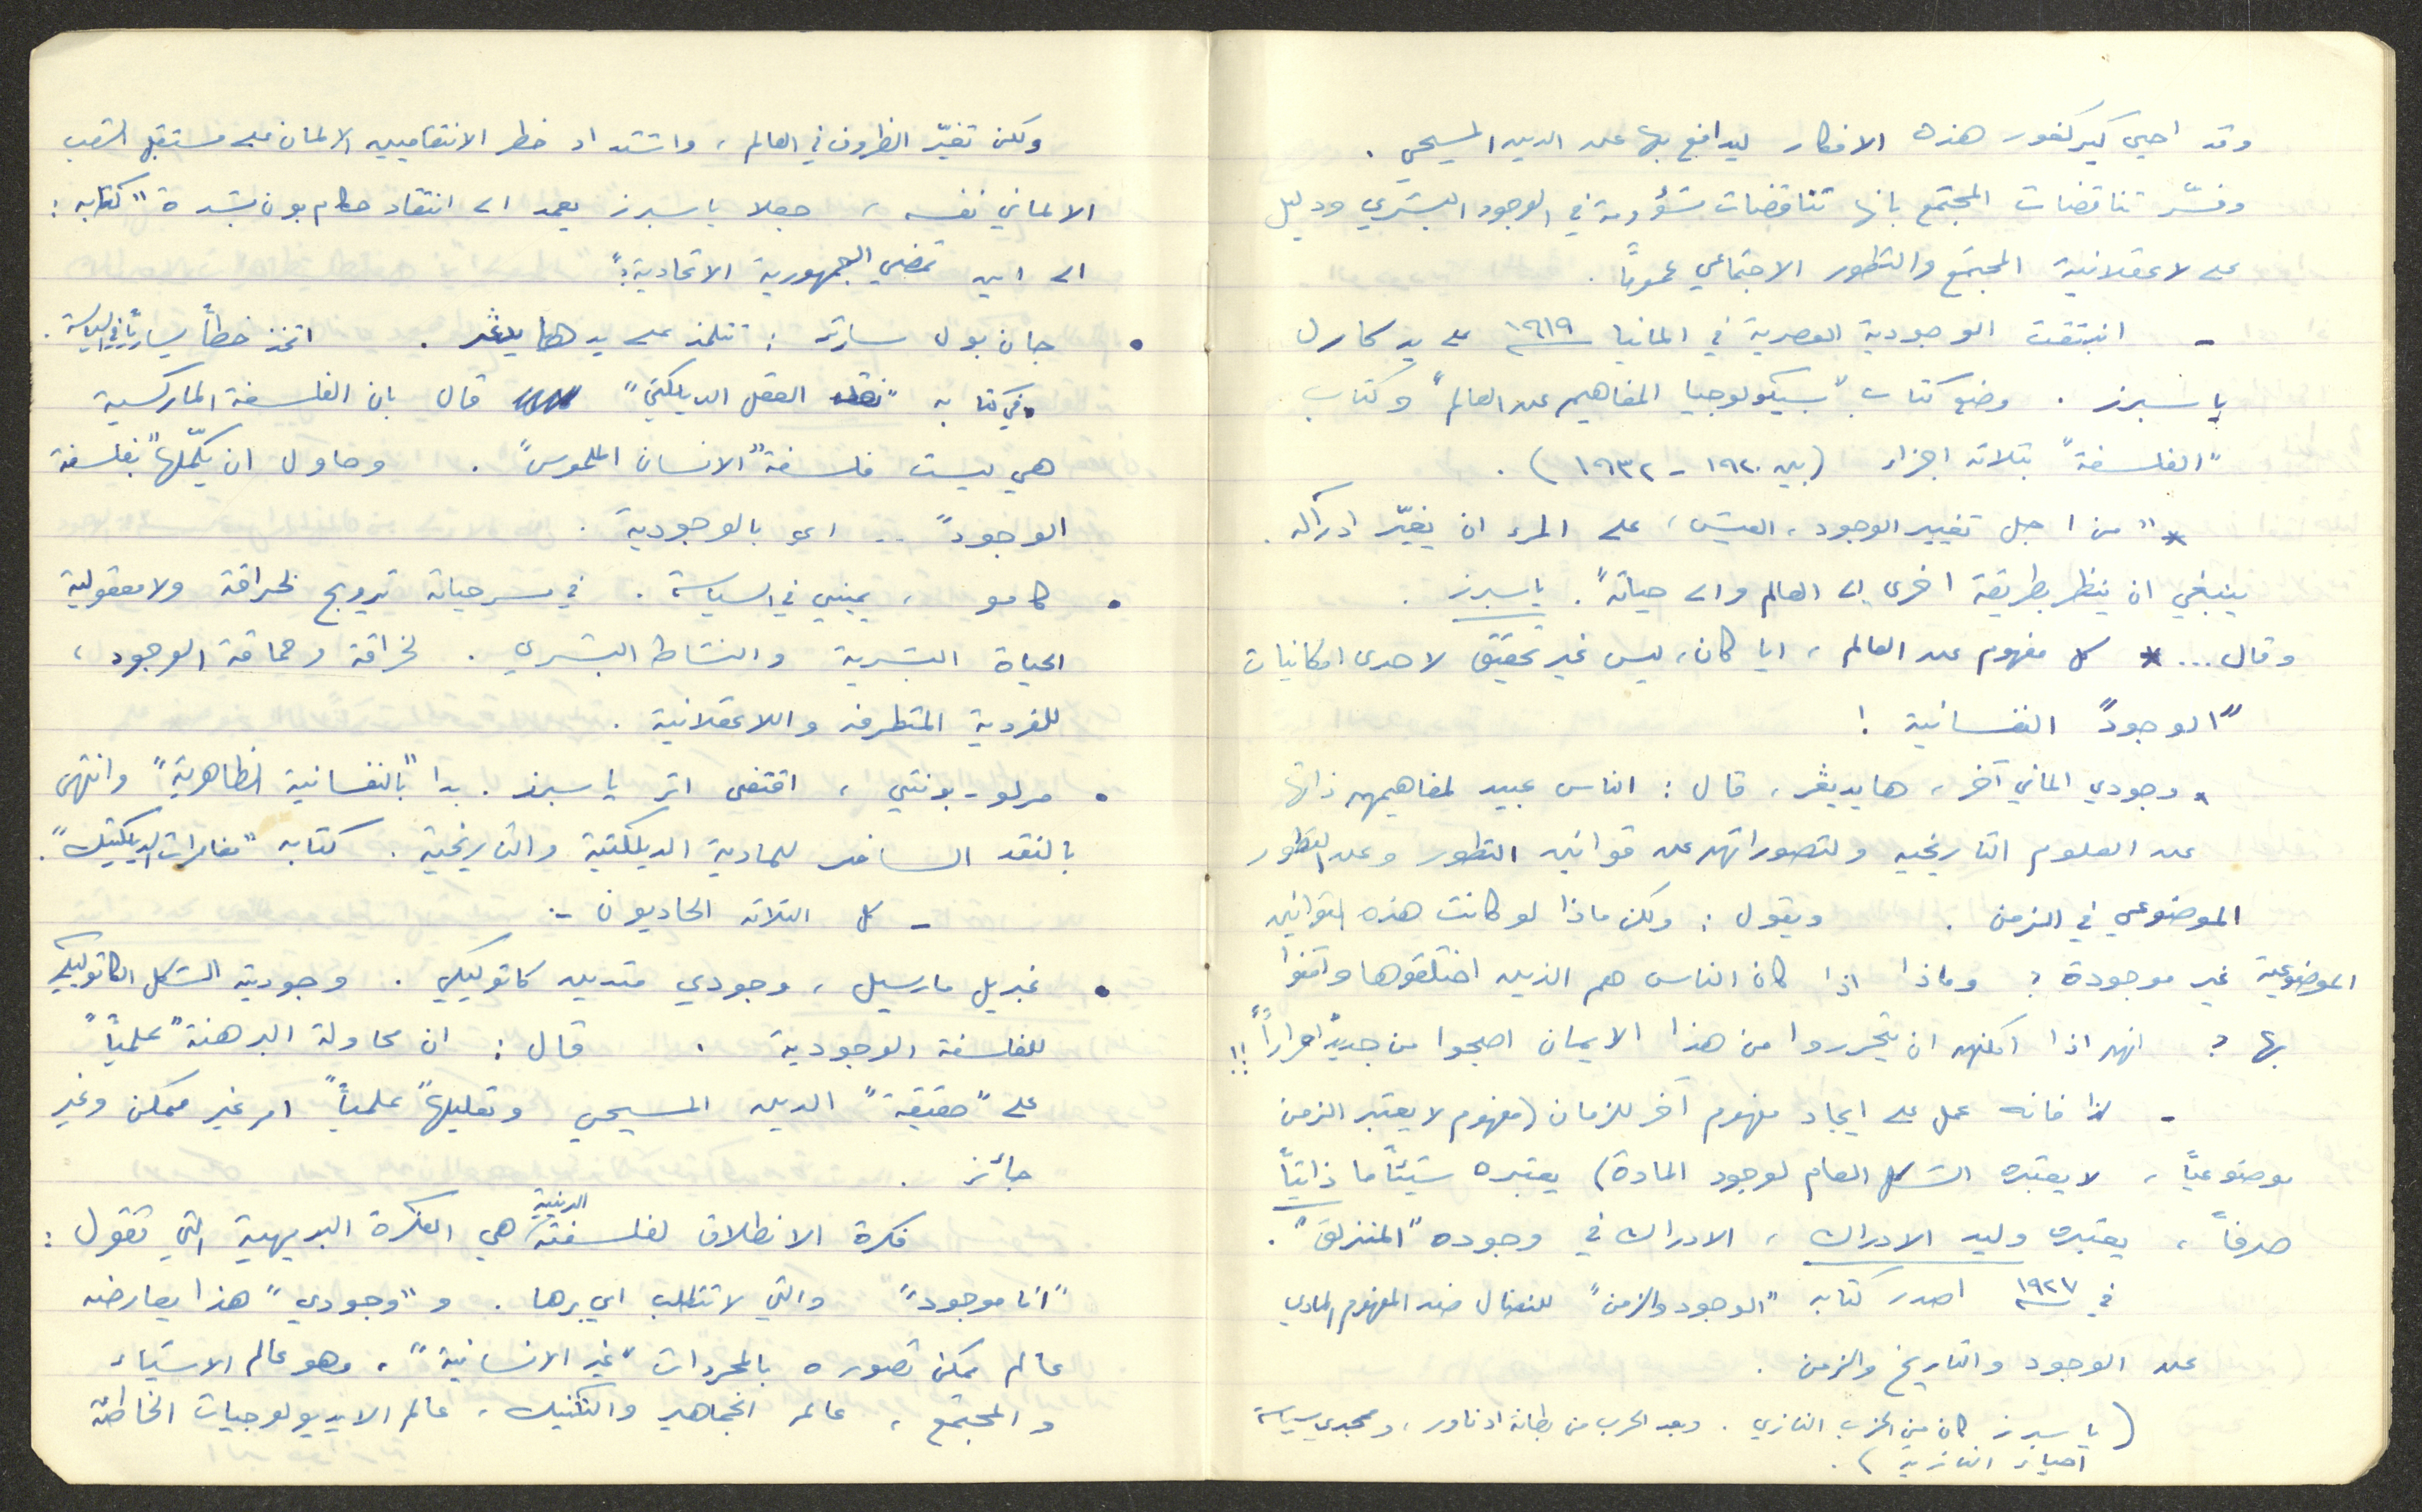 وقد احيى كيركغور هذه الافكار ليدافع بها عن الدين المسيحي .
وفسّر تناقضات المجتمع بانها تناقضات مشؤومة في الوجود البشري ودليل
على لاعقلانية المجتمع والتطور الاجتماعي عموماً .
- انبثقت الوجودية العصرية في المانيا ١٩١٩ على يد كارل
ياسبرز . وضع كتاب "سيكولوجيا المفاهيم عن العالم" وكتاب
"الفلسفة" بثلاثة اجزاء (بين ١٩٢٠ - ١٩٣٢) .
* "من اجل تغيير الوجود، العيش، على المرء ان يغيّر ادراكه .
ينبغي ان ينظر بطريقة اخرى الى العالم والى حياته". ياسبرز .
وقال ... * كل مفهوم عن العالم، ايا كان، ليس غير تحقيق لاحدى امكانيات
"الوجود" النفسانية !
* وجودي الماني آخر، هايديغر، قال : الناس عبيد لمفاهيمهم ذاتها
عن العلوم التاريخيه ولتصوراتهم عن قوانين التطور وعن التطور
الموضوعي في الزمن . ويقول : ولكن ماذا لو كانت هذه القوانين
الموضوعية غير موجودة ؟ وماذا اذا كان الناس هم الذين اختلقوها وآمنوا
بها ؟ انهم اذا امكنهم ان يتحرروا من هذا الايمان اصبحوا من جديد "احراراً" !!
- لذا فانه عمل على ايجاد مفهوم آخر للزمان (مفهوم لا يعتبر الزمن
موضوعياً، لا يعتبره الشكل العام لوجود المادة) يعتبره شيئاً ما ذاتياً
صرفاً، يعتبره وليد الادراك، الادراك في وجوده "المنزلق" .
في ١٩٢٧ اصدر كتابه "الوجود والزمن" للنضال ضد المفهوم المادي
عن الوجود والتاريخ والزمن .
(ياسبرز كان من الحزب النازي . وبعد الحرب من بطانة اديناور، و سياسة
احياء النازية) .
ولكن تغيّر الظروف في العالم، واشتداد خطر الانتقاميين الالمان على مستقبل الشعب
الالماني نفسه، جعلا ياسبرز يعمد الى انتقاد حكام بون بشدة "كتابه :
الى اين تمضي الجمهورية الاتحادية ؟"
• جان بول سارتر : تتلمذ على يد هايدغر . اتخذ خطاً يسارياً في السياسة .
في كتابه "نقد العقل الديلكتي" قال بان الفلسفة الماركسية
هي ليست فلسفة "الانسان الملموس" . وحاول ان يكمّلها "بفلسفة
الوجود" .. اي بالوجودية .
• كامو، يميني في السياسة . في مسرحياته ترويج لخرافة ولامعقولية
الحياة البشرية والنشاط البشري . لخرافة وحماقة الوجود،
للفردية المتطرفه واللاعقلانية .
• مرلو - بونتي، اقتفى اثر ياسبرز . بدا "بالنفسانية الظاهرية" وانتهى
بالنقد السافر للمادية الديلكتية والتاريخية . كتابه "مغامرات الديلكتيك" .
- كل الثلاثه الحاديون -
• غبريل مارسيل، وجودي متدين كاثوليكي . وجوديته الشكل الكاثوليكي
للفلسفة الوجودية . قال : ان محاولة البرهنة "علمياً"
على "حقيقة" الدين المسيحي وتعليلها "علمياً" امر غير ممكن وغير
جائز .
فكرة الانطلاق لفلسفته الدينية هي الفكرة البديهية التي تقول :
"انا موجود" والتي لا تتطلب اي برها . و "وجودي" هذا يعارضه
عالم يمكن تصوره بالمجردات "غير الانسانية"، وهو عالم الاشياء
والمجتمع، عالم الجماهير والتكنيك، عالم الايديولوجيات الخاطئة